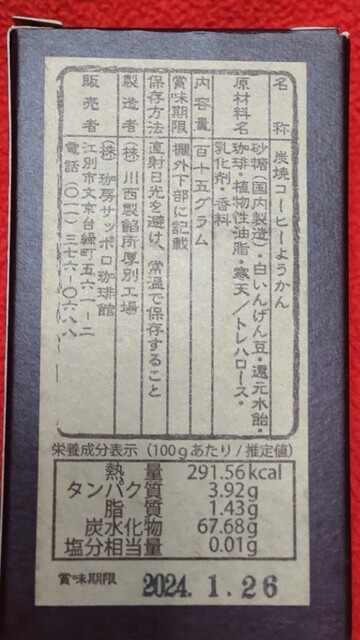 名称 炭焼コーヒーようかん
原材料名 砂糖(国内製造)・白いんげん豆・還元水飴・
珈琲・植物性油脂・寒天/トレハロース・
乳化剤・香料
内容量 百十五グラム
賞味期限 欄外下部に記載
保存方法 直射日光を避け、常温で保存すること
製造者 (株)川西製餡所厚別工場
販売者 (株)珈房サッポロ珈琲館
江別市文京台緑町五六一-二
電話(〇一一)三七六-〇六八八
栄養成分表示(100gあたり/推定値)
熱量 291.56kcal
タンパク質 3.92g
脂質 1.43g
炭水化物 67.68g
塩分相当量 0.01g
賞味期限 2024.1.26